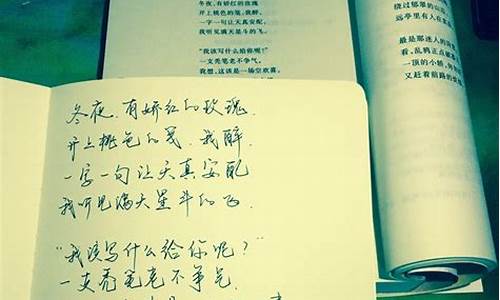 冬夜,有娇红的玫瑰
开上桃色的笺,我醉,
一字一句让天真安配,
我听见满天星斗的飞。
“我该写什么给你呢?”
一支秃笔老不争气。
我想,这该是一场空欢喜,
绕过郁翠的山
远亭里有人在
最是那迷人的
看,乱鸦正点
一顶的小轿,
又赶着前路的
冬夜,有娇红的玫瑰,
开上桃色的笺,我醉,
一字一句让天真安配
我听见满天星斗的飞,
“我该写什么给你呢?”
一支秃笔老不争气,